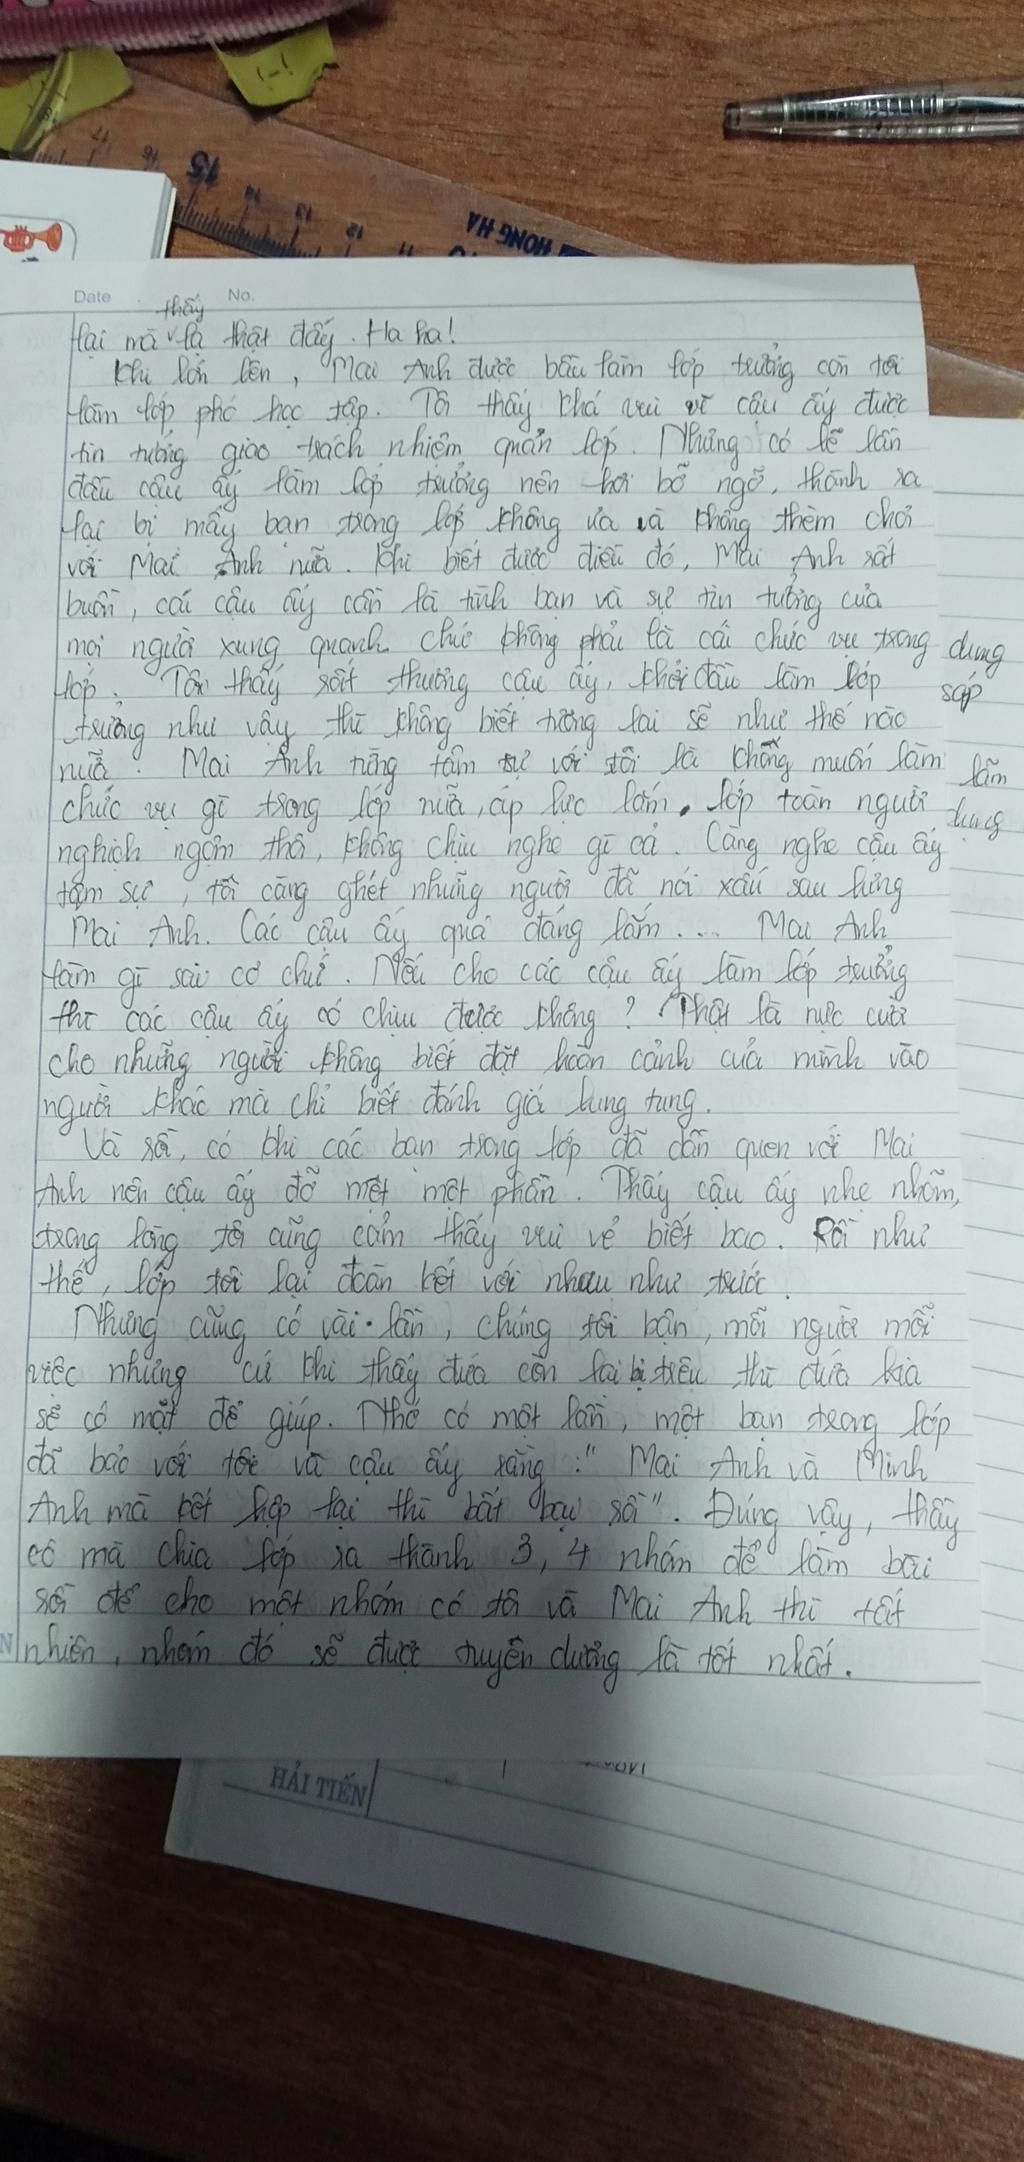 17 16 15 14 13 12 11
HONG HA
Date No.
thấy
lại mà là thật đấy. Ha ha!
Khi lớn lên, Mai Anh được bầu làm lớp trưởng còn tôi
làm lớp phó học tập. Tôi thấy khá vui vì cậu ấy được
tin tưởng giao trách nhiệm quản lớp. Nhưng có lẽ lần
đầu cậu ấy làm lớp trưởng nên hơi bỡ ngỡ, thành ra
lại bị mấy bạn trong lớp không ưa và không thèm chơi
với Mai Anh nữa. Khi biết được điều đó, Mai Anh rất
buồn, cái cậu ấy cần là tình bạn và sự tin tưởng của
mọi người xung quanh chứ không phải là cái chức vụ trong
lớp. Tôi thấy rất thương cậu ấy, khởi đầu làm lớp
trưởng như vậy thì không biết tương lai sẽ như thế nào
nữa. Mai Anh từng tâm sự với tôi là không muốn làm
chức vụ gì trong lớp nữa, áp lực lắm. lớp toàn người
nghịch ngợm thôi, không chịu nghe gì cả. Càng nghe cậu ấy
tâm sự, tôi càng ghét những người đã nói xấu sau lưng
Mai Anh. Các cậu ấy quá đáng lắm.... Mai Anh
làm gì sai cơ chứ. Nếu cho các cậu ấy làm lớp trưởng
thì các cậu ấy có chịu được không? Thật là nực cười
cho những người không biết đặt hoàn cảnh của mình vào
người khác mà chỉ biết đánh giá lung tung.
Và rồi, có khi các bạn trong lớp đã dần quen với Mai
Anh nên cậu ấy đỡ mệt một phần. Thấy cậu ấy nhẹ nhõm,
trong lòng tôi cũng cảm thấy vui vẻ biết bao. Rồi như
thế, lớp tôi lại đoàn kết với nhau như trước.
Nhưng cũng có vài lần, chúng tôi bận, mỗi người mỗi
việc nhưng cứ khi thấy đứa còn lại bị trêu thì đứa kia
sẽ có mặt để giúp. Nhớ có một lần, một bạn trong lớp
đã bảo với tôi và cậu ấy rằng: " Mai Anh và Minh
Anh mà kết hợp lại thì bất bại rồi". Đúng vậy, thầy
cô mà chia lớp ra thành 3, 4 nhóm để làm bài
rồi để cho một nhóm có tôi và Mai Anh thì tất
nhiên, nhóm đó sẽ được tuyên dương là tốt nhất.
dung
sáp
lắm
dung
HẢI TIẾN